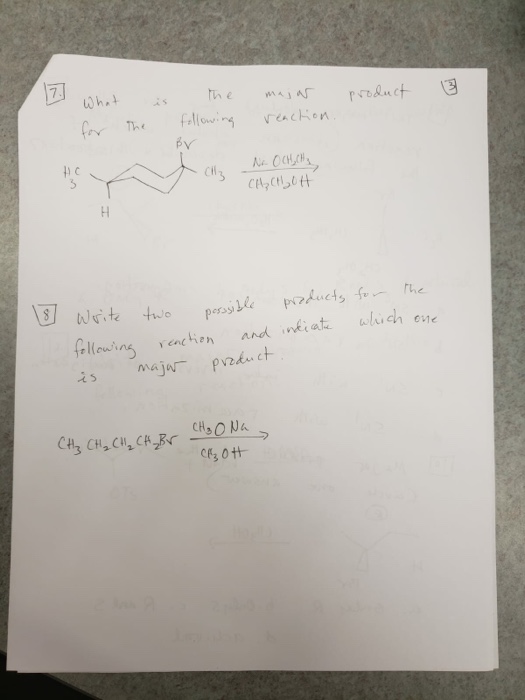 7. What is the major product
for the following reaction.
3
Br
H3C
CH3
H
Na OCH2CH3
CH3CH2OH
8 Write two possible products for the
following reaction and indicate which one
is major product.
CH3 CH2 CH2 CH2Br
CH3 O Na
CH3 OH